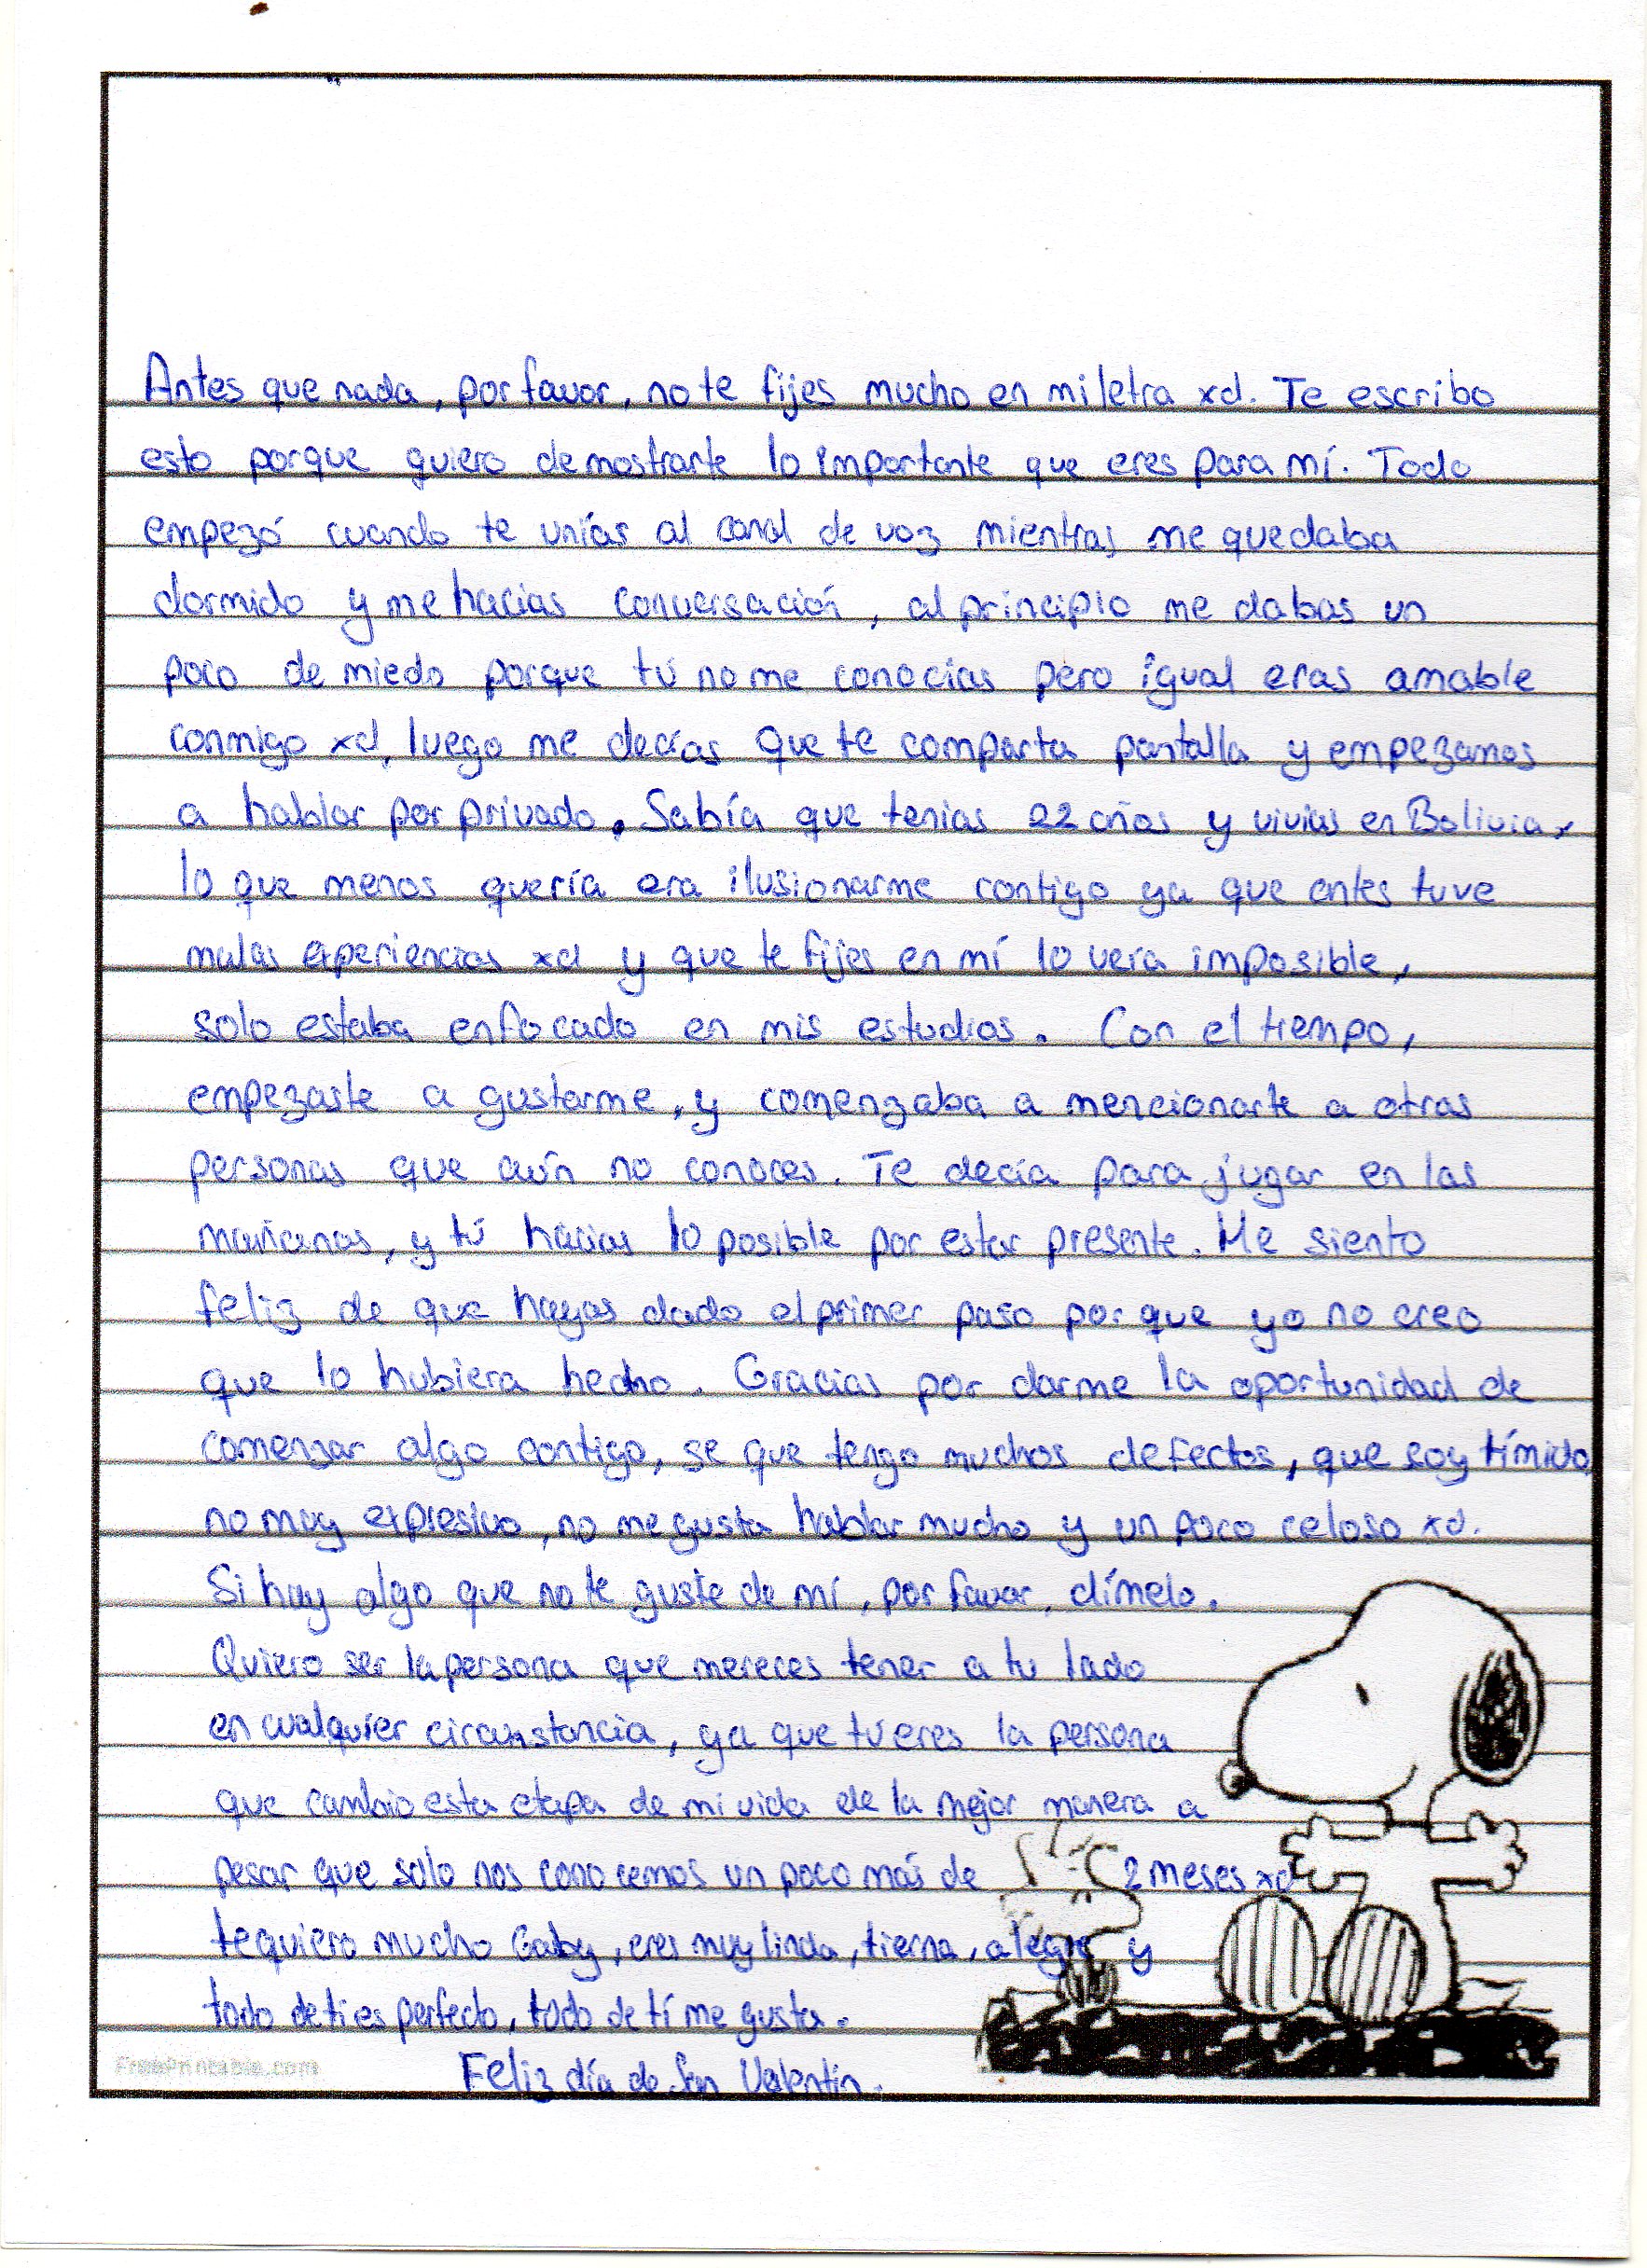 Antes que nada, por favor, no te fijes mucho en mi letra xd. Te escribo
esto porque quiero demostrarte lo importante que eres para mí. Todo
empezó cuando te unías al canal de voz mientras me quedaba
dormido y me hacias conversación, al principio me dabas un
poco de miedo porque tú no me conocias pero igual eras amable
conmigo xd, luego me decías que te comparta pantalla y empezamos
a hablar por privado. Sabía que tenias 22 años y vivias en Bolivia,
lo que menos quería era ilusionarme contigo ya que antes tuve
malas experiencias xd y que te fijes en mí lo vera imposible,
solo estaba enfocado en mis estudios. Con el tiempo,
empezaste a gustarme, y comenzaba a mencionarte a otras
personas que aún no conoces. Te decía para jugar en las
mañanas, y tú hacias lo posible por estar presente. Me siento
feliz de que hayas dado el primer paso porque yo no creo
que lo hubiera hecho. Gracias por darme la oportunidad de
comenzar algo contigo, se que tengo muchos defectos, que soy tímido,
no muy expresivo, no me gusta hablar mucho y un poco celoso xd.
Si hay algo que no te guste de mí, por favor, dímelo.
Quiero ser la persona que mereces tener a tu lado
en cualquier circunstancia, ya que tú eres la persona
que cambio esta etapa de mi vida de la mejor manera a
pesar que solo nos conocemos un poco más de 2 meses xd
te quiero mucho Gaby, eres muy linda, tierna, alegre y
todo de ti es perfecto, todo de tí me gusta.
FreePrintable.com
Feliz día de San Valentin.